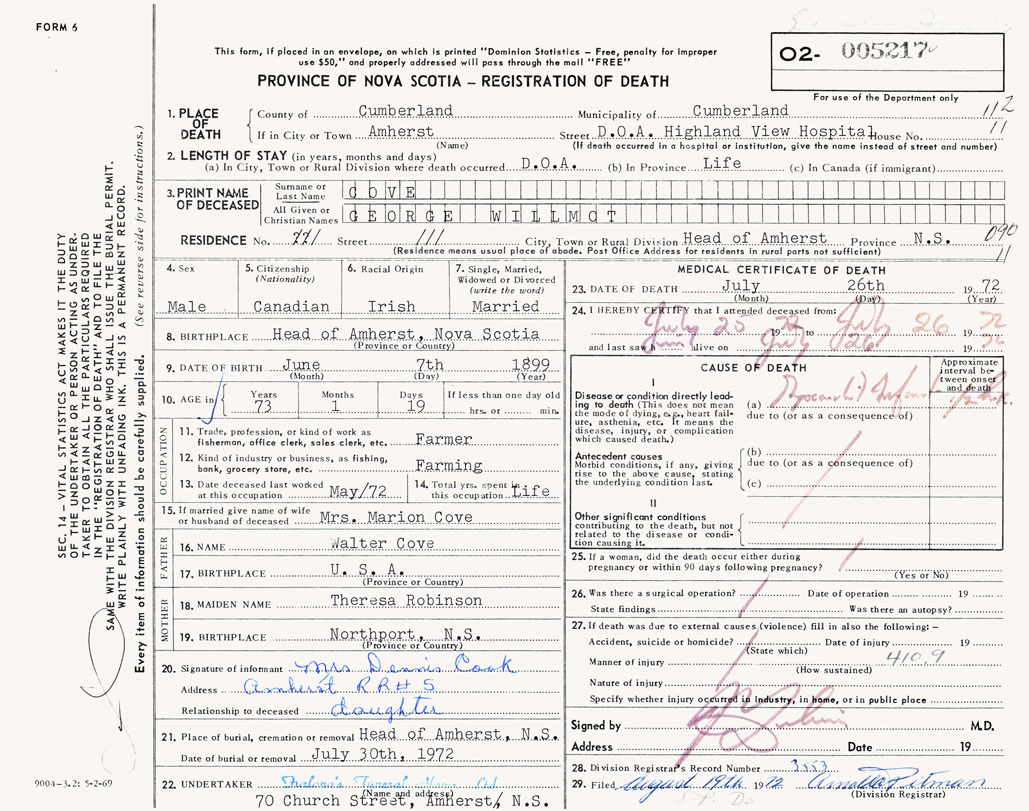 FORM 6
This form, if placed in an envelope, on which is printed "Dominion Statistics – Free, penalty for improper
use $50," and properly addressed will pass through the mail "FREE"
PROVINCE OF NOVA SCOTIA – REGISTRATION OF DEATH
02- 005217
For use of the Department only
SEC. 14 – VITAL STATISTICS ACT MAKES IT THE DUTY
OF THE UNDERTAKER OR PERSON ACTING AS UNDER-
TAKER TO OBTAIN ALL THE PARTICULARS REQUIRED
IN THE "REGISTRATION OF DEATH" AND TO FILE THE
SAME WITH THE DIVISION REGISTRAR WHO SHALL ISSUE THE BURIAL PERMIT.
WRITE PLAINLY WITH UNFADING INK. THIS IS A PERMANENT RECORD.
Every item of information should be carefully supplied. (See reverse side for instructions.)
1. PLACE OF DEATH County of Cumberland Municipality of Cumberland 112
If in City or Town Amherst Street D.O.A. Highland View Hospital House No. 11
(Name) (If death occurred in a hospital or institution, give the name instead of street and number)
2. LENGTH OF STAY (in years, months and days)
(a) In City, Town or Rural Division where death occurred D.O.A. (b) In Province Life (c) In Canada (if immigrant)
3. PRINT NAME OF DECEASED Surname or Last Name COVE
All Given or Christian Names GEORGE WILLMOT
RESIDENCE No. 771 Street /// City, Town or Rural Division Head of Amherst Province N.S. 090
(Residence means usual place of abode. Post Office Address for residents in rural parts not sufficient) 11
4. Sex 5. Citizenship (Nationality) 6. Racial Origin 7. Single, Married, Widowed or Divorced (write the word)
Male Canadian Irish Married
8. BIRTHPLACE Head of Amherst, Nova Scotia
(Province or Country)
9. DATE OF BIRTH June 7th 1899
(Month) (Day) (Year)
10. AGE in Years Months Days If less than one day old
73 1 19 hrs. or min.
OCCUPATION
11. Trade, profession, or kind of work as
fisherman, office clerk, sales clerk, etc. Farmer
12. Kind of industry or business, as fishing,
bank, grocery store, etc. Farming
13. Date deceased last worked at this occupation May/72 14. Total yrs. spent in this occupation Life
15. If married give name of wife
or husband of deceased Mrs. Marion Cove
FATHER
16. NAME Walter Cove
17. BIRTHPLACE U. S. A.
(Province or Country)
MOTHER
18. MAIDEN NAME Theresa Robinson
19. BIRTHPLACE Northport, N.S.
(Province or Country)
20. Signature of informant Mrs Dennis Cook
Address Amherst RR# 5
Relationship to deceased daughter
21. Place of burial, cremation or removal Head of Amherst, N.S.
Date of burial or removal July 30th, 1972
22. UNDERTAKER Funeral Home Ltd.
(Name and address)
70 Church Street, Amherst, N.S.
9004-3.2: 5-2-69
MEDICAL CERTIFICATE OF DEATH
23. DATE OF DEATH July 26th 19 72
(Month) (Day) (Year)
24. I HEREBY CERTIFY that I attended deceased from:
July 25 19 72 to July 26 19 72
and last saw h alive on July 26 19 72
CAUSE OF DEATH
Approximate interval between onset and death
I
Disease or condition directly lead-
ing to death (This does not mean
the mode of dying, e.g., heart fail-
ure, asthenia, etc. It means the
disease, injury, or complication
which caused death.)
(a)
due to (or as a consequence of)
Antecedent causes
Morbid conditions, if any, giving
rise to the above cause, stating
the underlying condition last.
(b)
due to (or as a consequence of)
(c)
II
Other significant conditions
contributing to the death, but not
related to the disease or condi-
tion causing it.
25. If a woman, did the death occur either during
pregnancy or within 90 days following pregnancy?
(Yes or No)
26. Was there a surgical operation? Date of operation 19
State findings Was there an autopsy?
27. If death was due to external causes (violence) fill in also the following: –
Accident, suicide or homicide? Date of injury 19
(State which)
Manner of injury 410.9
(How sustained)
Nature of injury
Specify whether injury occurred in Industry, in home, or in public place
Signed by M.D.
Address Date 19
28. Division Registrar's Record Number 3553
29. Filed August 19th 1972
(Division Registrar)